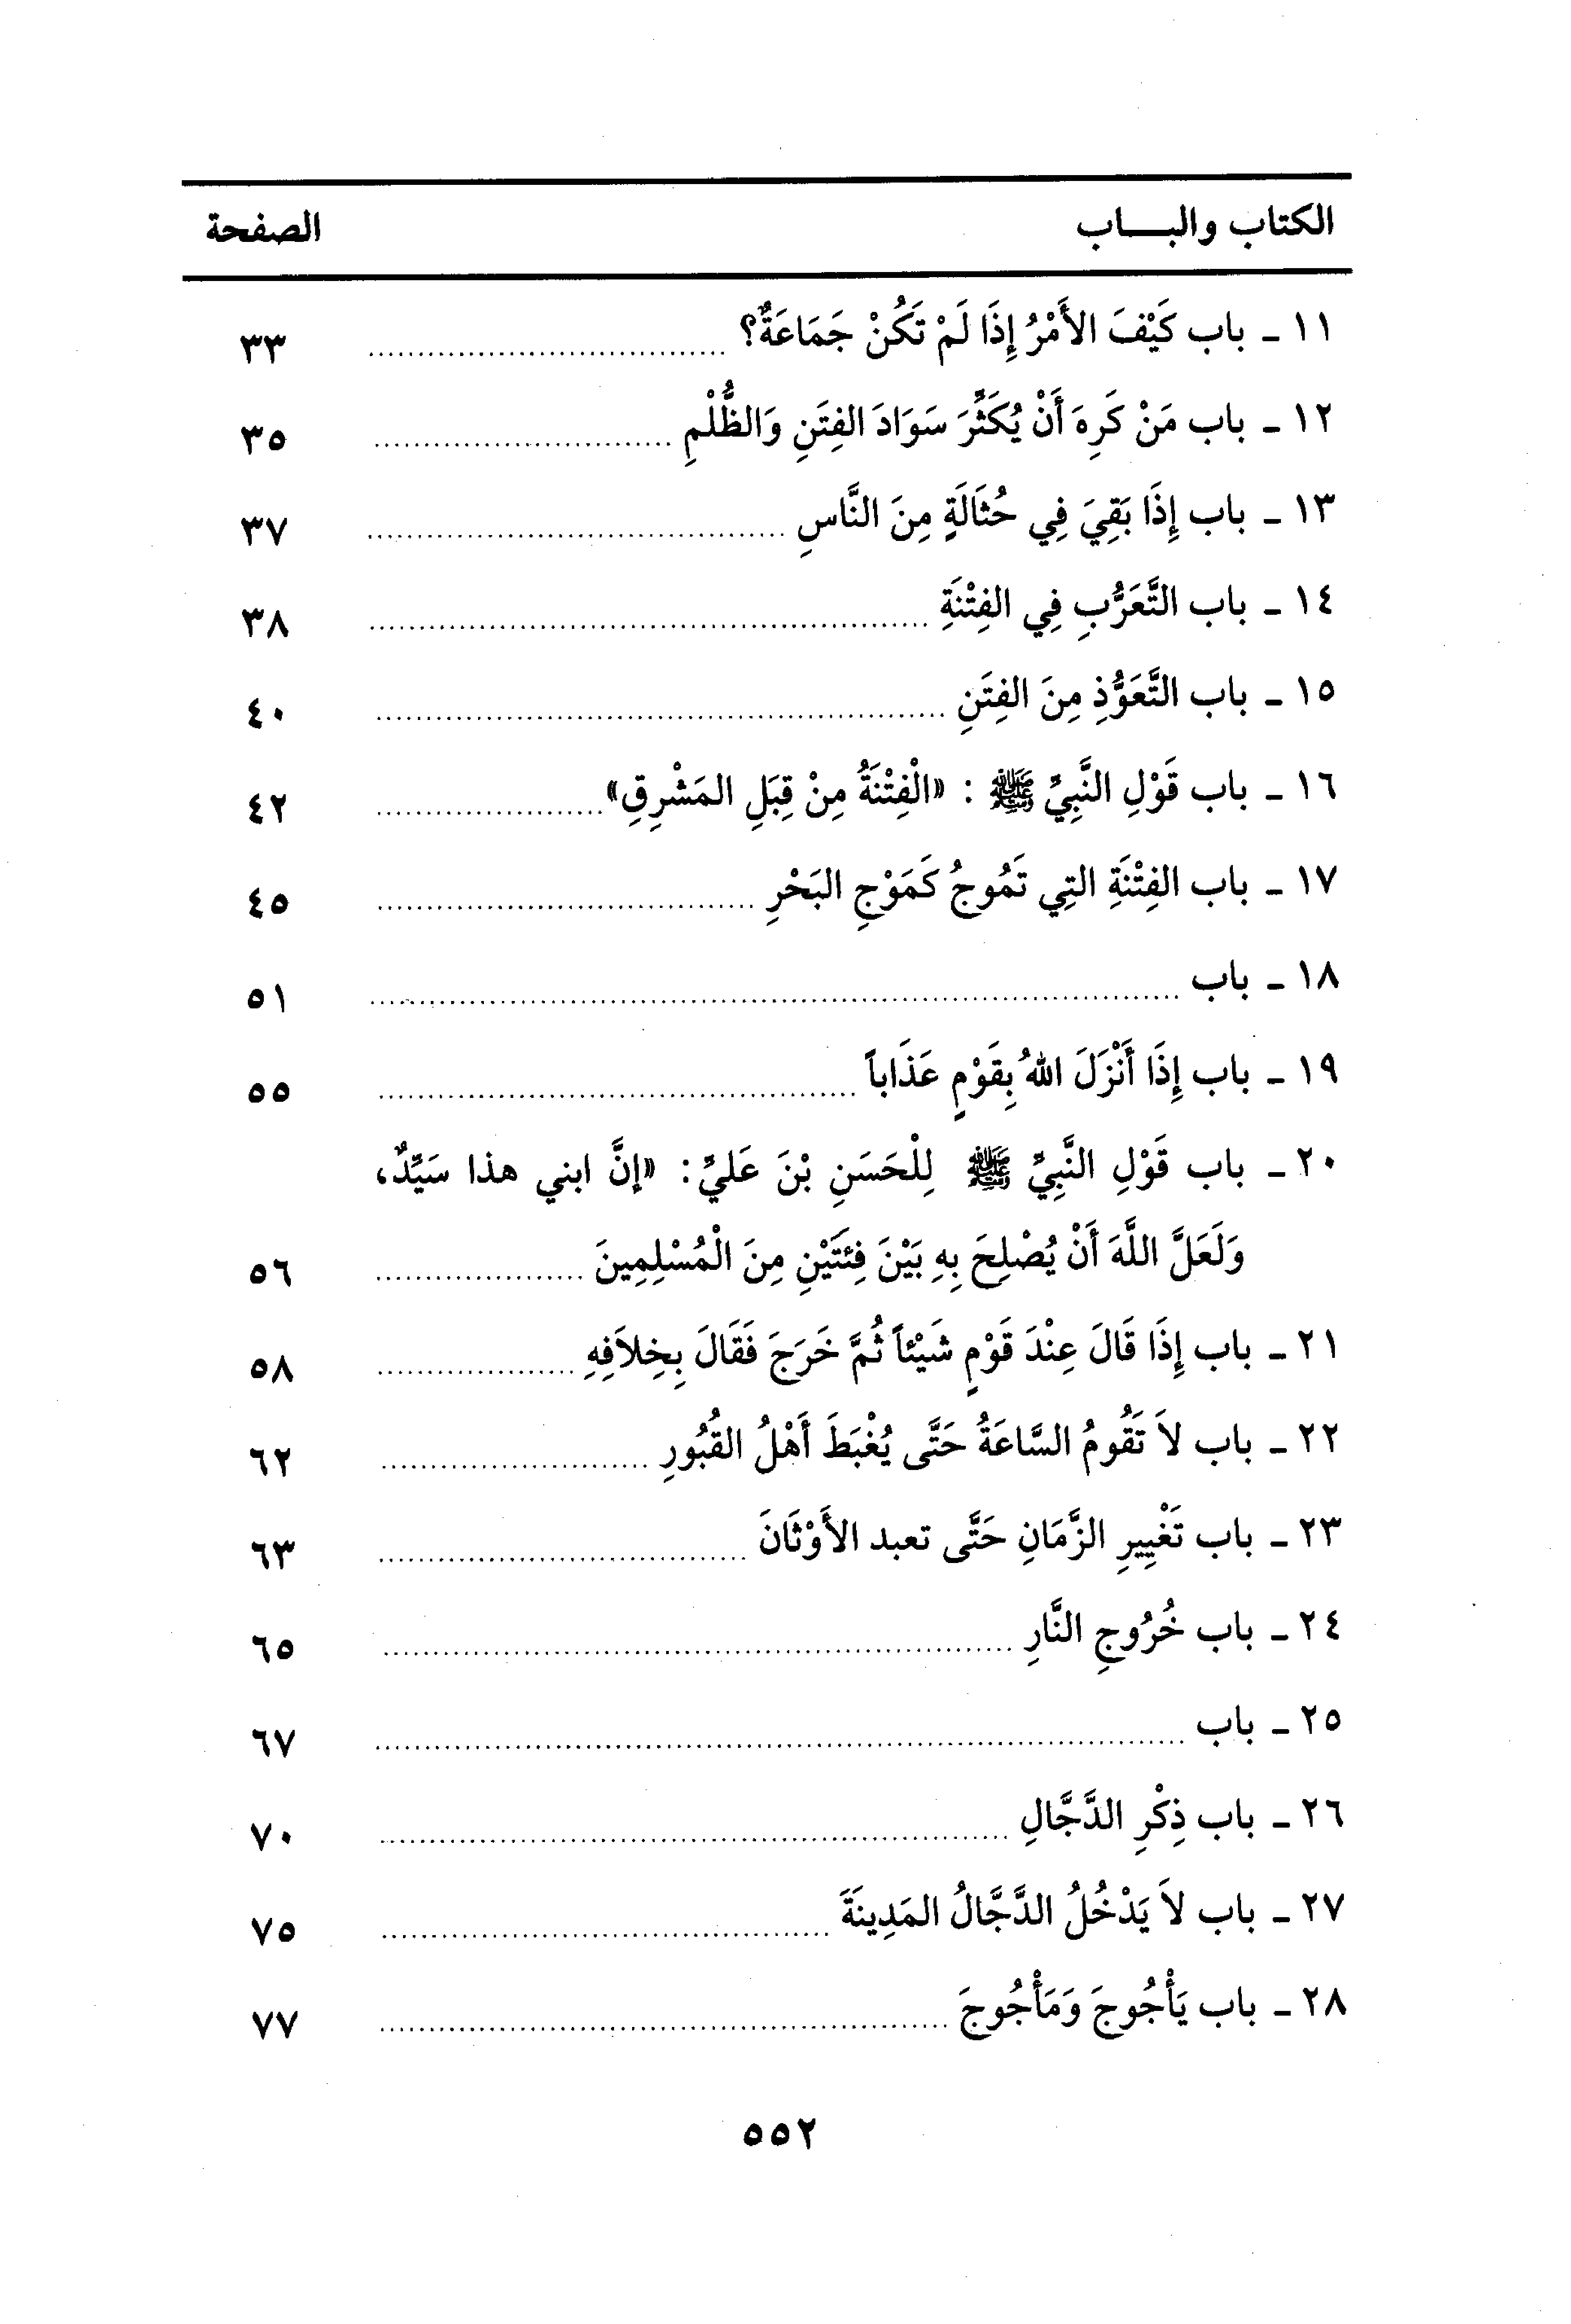 الكتاب والبـــاب الصفحة
١١ ـ باب كَيْفَ الأَمْرُ إِذَا لَمْ تَكُنْ جَمَاعَةٌ؟ ................ ٣٣
١٢ ـ باب مَنْ كَرِهَ أَنْ يُكَثِّرَ سَوَادَ الفِتَنِ وَالظُّلْمِ ................ ٣٥
١٣ ـ باب إِذَا بَقِيَ فِي حُثَالَةٍ مِنَ النَّاسِ ................ ٣٧
١٤ ـ باب التَّعَرُّبِ فِي الفِتْنَةِ ................ ٣٨
١٥ ـ باب التَّعَوُّذِ مِنَ الفِتَنِ ................ ٤٠
١٦ ـ باب قَوْلِ النَّبِيِّ ﷺ : «الْفِتْنَةُ مِنْ قِبَلِ المَشْرِقِ» ................ ٤٢
١٧ ـ باب الفِتْنَةِ التِي تَمُوجُ كَمَوْجِ البَحْرِ ................ ٤٥
١٨ ـ باب ................ ٥١
١٩ ـ باب إِذَا أَنْزَلَ اللهُ بِقَوْمٍ عَذَاباً ................ ٥٥
٢٠ ـ باب قَوْلِ النَّبِيِّ ﷺ لِلْحَسَنِ بْنَ عَليِّ: «إنَّ ابني هذا سَيِّدٌ،
وَلَعَلَّ اللَّهَ أَنْ يُصْلِحَ بِهِ بَيْنَ فِئَتَيْنِ مِنَ الْمُسْلِمِينَ ................ ٥٦
٢١ ـ باب إِذَا قَالَ عِنْدَ قَوْمٍ شَيْئاً ثُمَّ خَرَجَ فَقَالَ بِخِلاَفِهِ ................ ٥٨
٢٢ ـ باب لاَ تَقُومُ السَّاعَةُ حَتَّى يُغْبَطَ أَهْلُ القُبُورِ ................ ٦٢
٢٣ ـ باب تَغْيِيرِ الزَّمَانِ حَتَّى تعبد الأَوْثَانَ ................ ٦٣
٢٤ ـ باب خُرُوجِ النَّارِ ................ ٦٥
٢٥ ـ باب ................ ٦٧
٢٦ ـ باب ذِكْرِ الدَّجَّالِ ................ ٧٠
٢٧ ـ باب لاَ يَدْخُلُ الدَّجَّالُ المَدِينَةَ ................ ٧٥
٢٨ ـ باب يَأْجُوجَ وَمَأْجُوجَ ................ ٧٧
٥٥٢